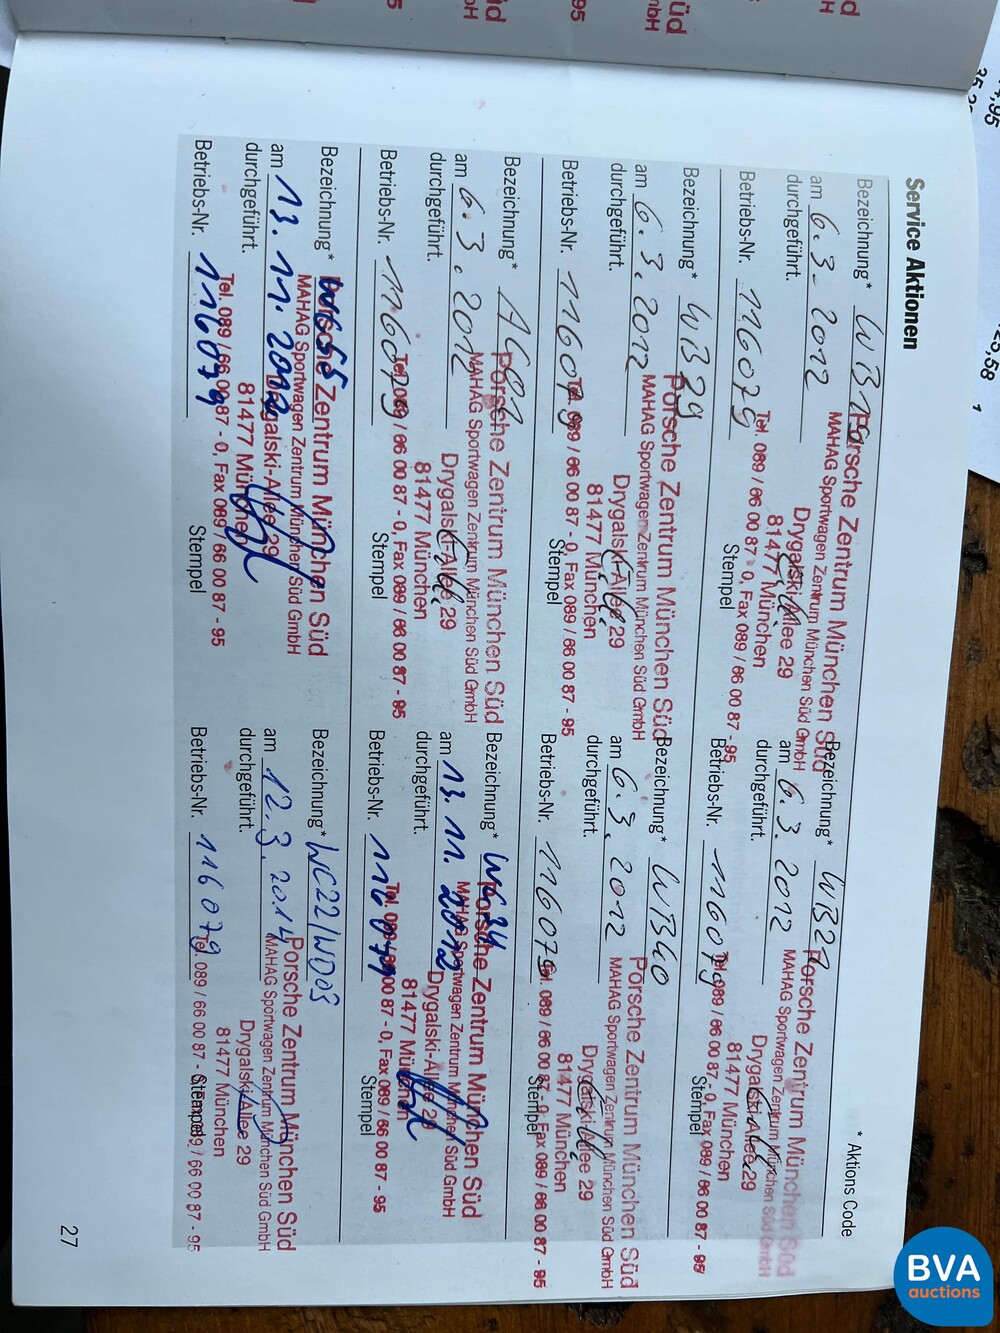 Service Aktionen
* Aktions Code
Bezeichnung* WB19
am 6.3.2012
durchgeführt.
Betriebs-Nr. 116079
Porsche Zentrum München Süd
MAHAG Sportwagen Zentrum München Süd GmbH
Drygalski-Allee 29
81477 München
Tel. 089 / 66 00 87 - 0, Fax 089 / 66 00 87 - 95
Stempel
Bezeichnung* WB27
am 6.3.2012
durchgeführt.
Betriebs-Nr. 116079
Porsche Zentrum München Süd
MAHAG Sportwagen Zentrum München Süd GmbH
Drygalski-Allee 29
81477 München
Tel. 089 / 66 00 87 - 0, Fax 089 / 66 00 87 - 95
Stempel
Bezeichnung* WB39
am 6.3.2012
durchgeführt.
Betriebs-Nr. 116079
Porsche Zentrum München Süd
MAHAG Sportwagen Zentrum München Süd GmbH
Drygalski-Allee 29
81477 München
Tel. 089 / 66 00 87 - 0, Fax 089 / 66 00 87 - 95
Stempel
Bezeichnung* WB40
am 6.3.2012
durchgeführt.
Betriebs-Nr. 116079
Porsche Zentrum München Süd
MAHAG Sportwagen Zentrum München Süd GmbH
Drygalski-Allee 29
81477 München
Tel. 089 / 66 00 87 - 0, Fax 089 / 66 00 87 - 95
Stempel
Bezeichnung* AC01
am 6.3.2012
durchgeführt.
Betriebs-Nr. 116079
Porsche Zentrum München Süd
MAHAG Sportwagen Zentrum München Süd GmbH
Drygalski-Allee 29
81477 München
Tel. 089 / 66 00 87 - 0, Fax 089 / 66 00 87 - 95
Stempel
Bezeichnung* WC34
am 13.11.2012
durchgeführt.
Betriebs-Nr. 116079
Porsche Zentrum München Süd
MAHAG Sportwagen Zentrum München Süd GmbH
Drygalski-Allee 29
81477 München
Tel. 089 / 66 00 87 - 0, Fax 089 / 66 00 87 - 95
Stempel
Bezeichnung*
am 13.11.2012
durchgeführt.
Betriebs-Nr. 116079
Porsche Zentrum München Süd
MAHAG Sportwagen Zentrum München Süd GmbH
Drygalski-Allee 29
81477 München
Tel. 089 / 66 00 87 - 0, Fax 089 / 66 00 87 - 95
Stempel
Bezeichnung* WC22/WD03
am 12.3.2014
durchgeführt.
Betriebs-Nr. 116079
Porsche Zentrum München Süd
MAHAG Sportwagen Zentrum München Süd GmbH
Drygalski-Allee 29
81477 München
Tel. 089 / 66 00 87 - 0, Fax 089 / 66 00 87 - 95
Stempel
27
BVA
auctions